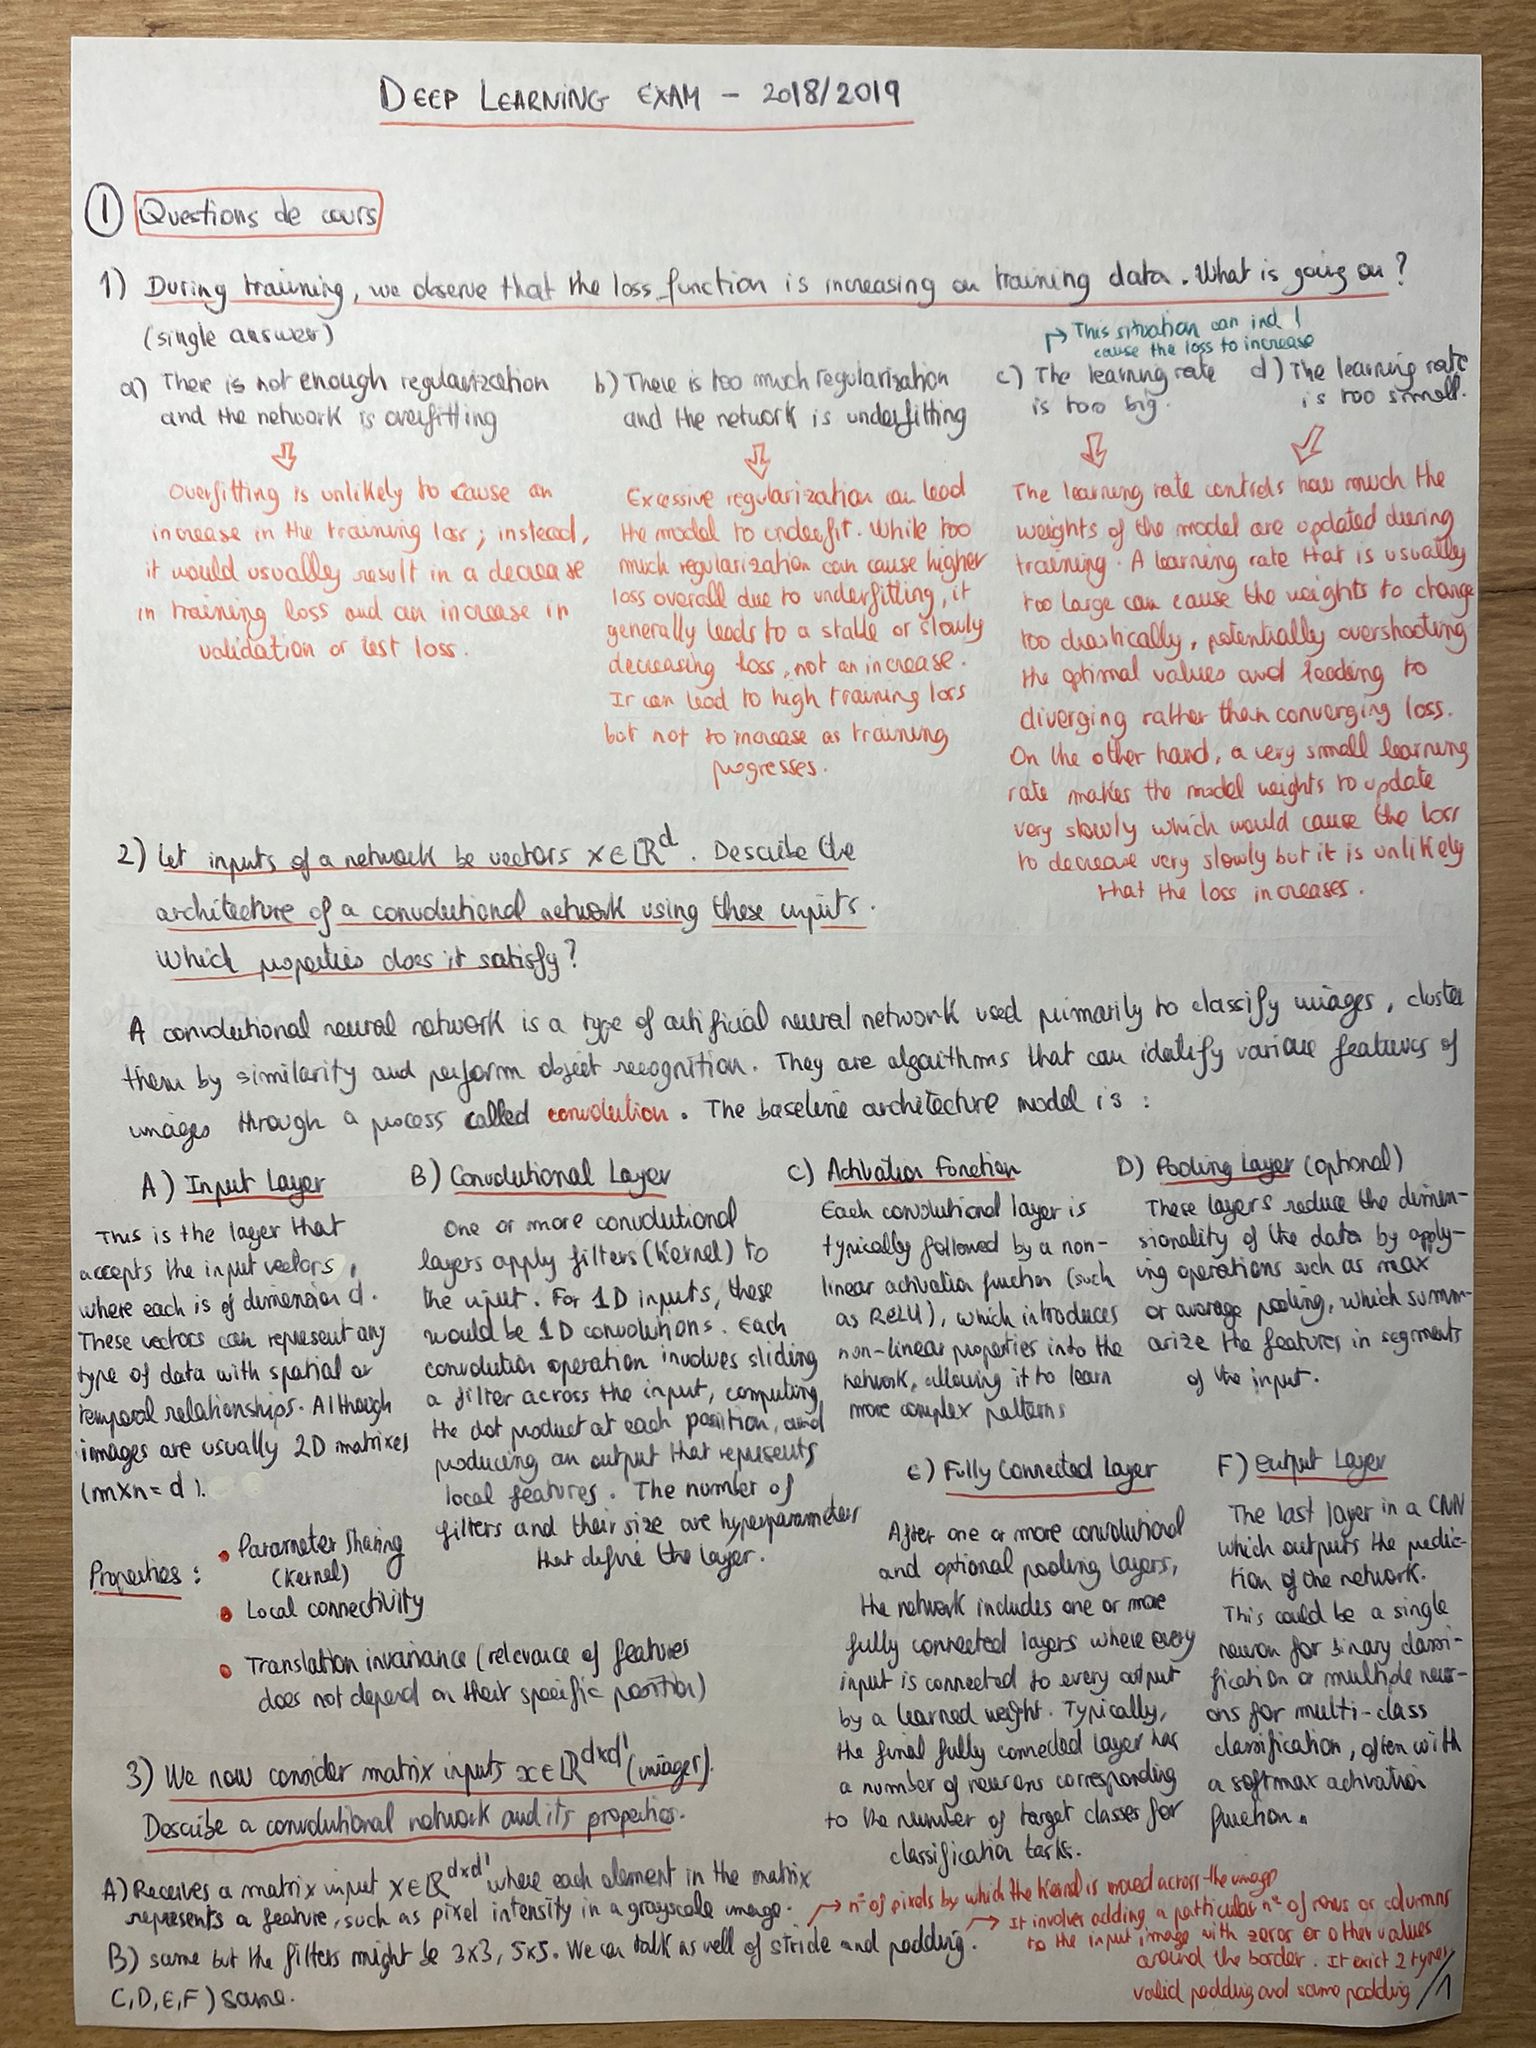 DEEP LEARNING EXAM - 2018/2019
① Questions de cours
1) During training, we observe that the loss function is increasing on training data. What is going on?
(single answer)
a) There is not enough regularization
and the network is overfitting
⇓
Overfitting is unlikely to cause an
increase in the training loss; instead,
it would usually result in a decrease
in training loss and an increase in
validation or test loss.
b) There is too much regularisation
and the network is underfitting
⇓
Excessive regularization can lead
the model to underfit. While too
much regularization can cause higher
loss overall due to underfitting, it
generally leads to a stable or slowly
decreasing loss, not an increase.
It can lead to high training loss
but not to increase as training
progresses.
↱ This situation can ind
cause the loss to increase
c) The learning rate
is too big.
d) The learning rate
is too small.
⇓ ⇓
The learning rate controls how much the
weights of the model are updated during
training. A learning rate that is usually
too large can cause the weights to change
too drastically, potentially overshooting
the optimal values and leading to
diverging rather than converging loss.
On the other hand, a very small learning
rate makes the model weights to update
very slowly which would cause the loss
to decrease very slowly but it is unlikely
that the loss increases.
2) Let inputs of a network be vectors x∈ℝᵈ. Describe the
architecture of a convolutional network using these inputs.
Which properties does it satisfy?
A convolutional neural network is a type of artificial neural network used primarily to classify images, cluster
them by similarity and perform object recognition. They are algorithms that can identify various features of
images through a process called convolution. The baseline architecture model is:
A) Input Layer
This is the layer that
accepts the input vectors,
where each is of dimension d.
These vectors can represent any
type of data with spatial or
temporal relationships. Although
images are usually 2D matrixes
(m×n=d).
B) Convolutional Layer
One or more convolutional
layers apply filters (kernel) to
the input. For 1D inputs, these
would be 1D convolutions. Each
convolution operation involves sliding
a filter across the input, computing
the dot product at each position, and
producing an output that represents
local features. The number of
filters and their size are hyperparameter
that define the layer.
C) Activation Function
Each convolutional layer is
typically followed by a non-
linear activation function (such
as ReLU), which introduces
non-linear properties into the
network, allowing it to learn
more complex patterns
D) Pooling Layer (optional)
These layers reduce the dimen-
sionality of the data by apply-
ing operations such as max
or average pooling, which summ-
arize the features in segments
of the input.
E) Fully Connected Layer
After one or more convolutional
and optional pooling layers,
the network includes one or more
fully connected layers where every
input is connected to every output
by a learned weight. Typically,
the final fully connected layer has
a number of neurons corresponding
to the number of target classes for
classification tasks.
F) Output Layer
The last layer in a CNN
which outputs the predic-
tion of the network.
This could be a single
neuron for binary classi-
fication or multiple neur-
ons for multi-class
classification, often with
a softmax activation
function.
Properties:
• Parameter sharing
(kernel)
• Local connectivity
• Translation invariance (relevance of features
does not depend on their specific position)
3) We now consider matrix inputs x∈ℝᵈˣᵈ' (images).
Describe a convolutional network and its properties.
A) Receives a matrix input x∈ℝᵈˣᵈ' where each element in the matrix
represents a feature, such as pixel intensity in a grayscale image.
B) same but the filters might be 3x3, 5x5. We can talk as well of stride and padding.
→ nº of pixels by which the kernel is moved across the image
→ It involves adding a particular nº of rows or columns
to the input image with zeros or other values
around the border. It exist 2 types
valid padding and same padding
C,D,E,F) same.
/1